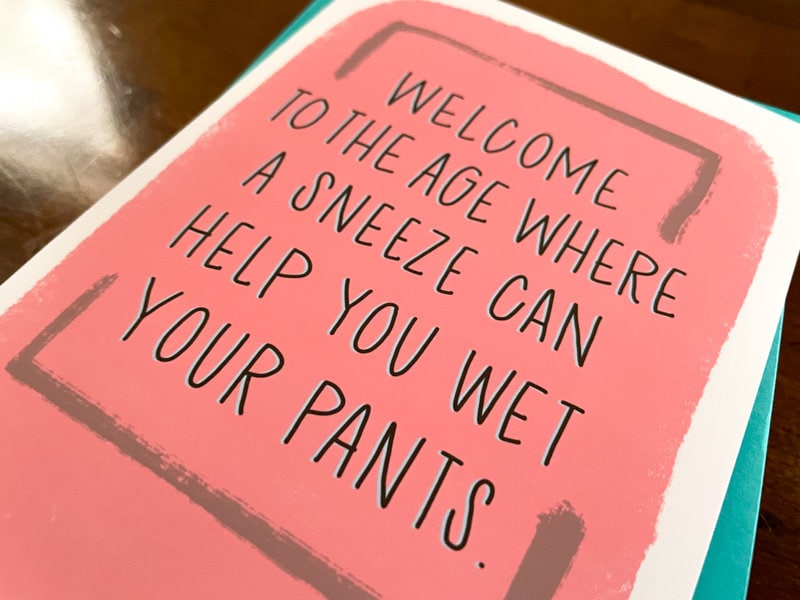 WELCOME
TO THE AGE WHERE
A SNEEZE CAN
HELP YOU WET
YOUR PANTS.